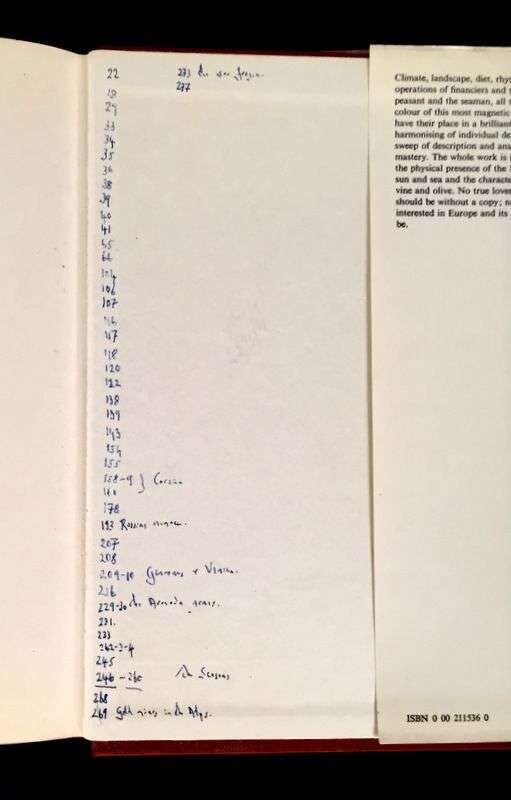 22
18
29
33
34
35
36
38
39
40
41
45
62
104
106
107
116
117
118
120
122
138
139
143
154
155
158-9 } Corsica
160
178
193 Russian
207
208
209-10 Germans & Venice.
216
229-30 the Armada
231.
233
242-3-4
245
246 - 260 The Seasons
268
269 Gold mines in the Alps.
273 the
277
Climate, landscape, diet, rhy
operations of financiers and
peasant and the seaman, all
colour of this most magnetic
have their place in a brillian
harmonising of individual de
sweep of description and ana
mastery. The whole work is
the physical presence of the
sun and sea and the characte
vine and olive. No true lover
should be without a copy; n
interested in Europe and its
be.
ISBN 0 00 211536 0